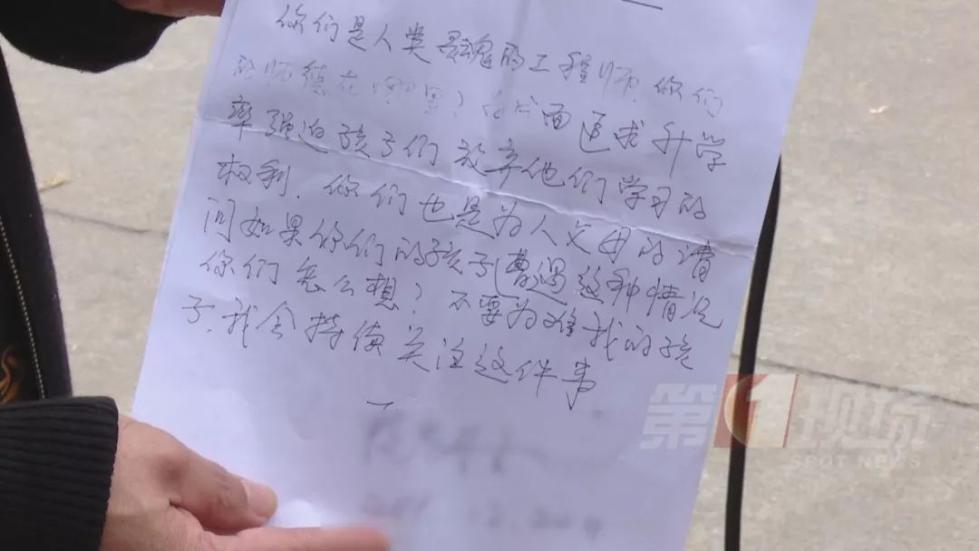 你们是人类灵魂的工程师.你们
的师德在哪里?在片面追求升学
率强迫孩子们放弃他们学习的
权利.你们也是为人父母的请
问如果你们的孩子遭遇这种情况
你们怎么想?不要为难我的孩
子.我会持续关注这件事
第1现场
SPOT NEWS